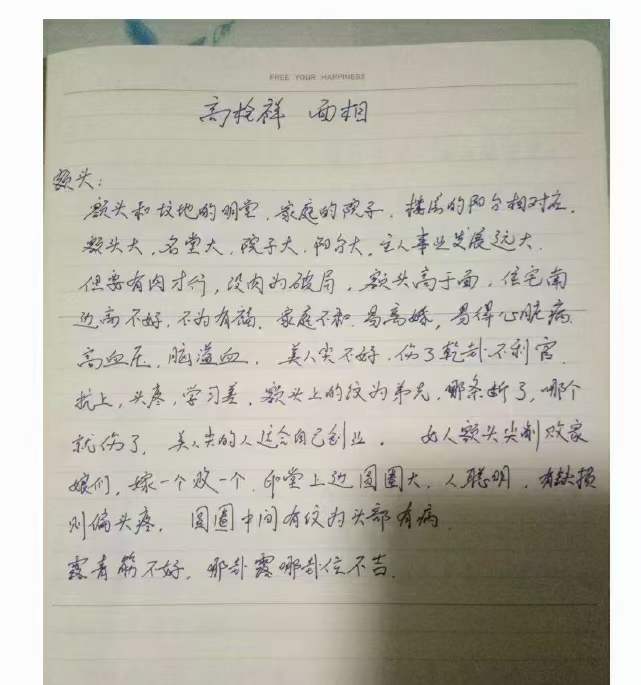 FREE YOUR HAPPINESS
高栓祥 面相
额头：
额头和坟地的明堂、家庭的院子、楼房的阳台相对应.
额头大，名堂大，院子大，阳台大，主人事业发展远大.
但要有肉才行，没肉为破局，额头高于面，住宅南
边高不好，不为有福，家庭不和，易离婚，易得心脏病
高血压，脑溢血. 美人尖不好，伤了乾卦不利官.
抗上，头疼，学习差，额头上的纹为弟兄，哪条断了，哪个
就伤了，美人尖的人适合自己创业。 女人额头尖削败家
娘们，嫁一个败一个. 印堂上边圆圈大，人聪明，有缺损
则偏头疼. 圆圈中间有纹为头部有病.
露青筋不好，哪卦露哪卦位不吉.